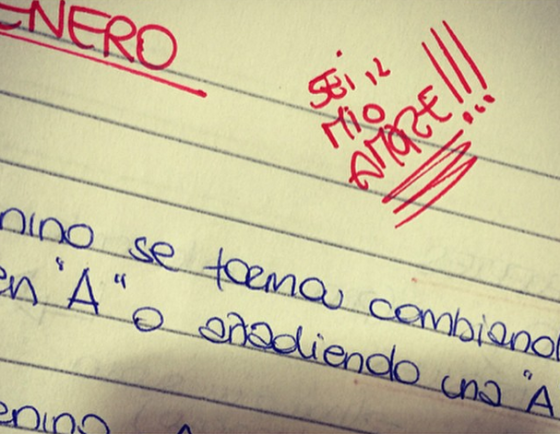 ENERO
SEI IL
MIO
AMORE!!!...
nino se forma cambiand
en "A" o añadiendo una "A
enino